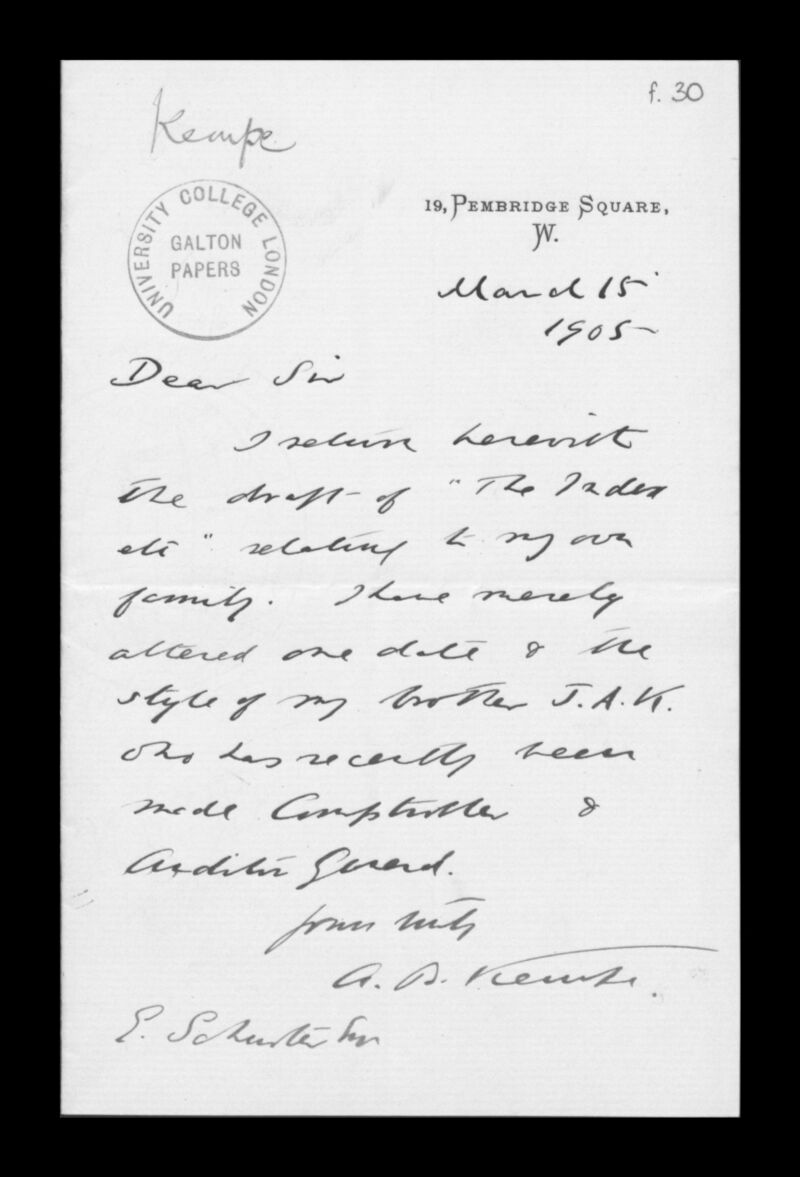 f. 30
Kempe
UNIVERSITY COLLEGE LONDON
GALTON
PAPERS
19, PEMBRIDGE SQUARE,
W.
March 15
1905
Dear Sir
I return herewith
the draft of "The Index
etc" relating to my own
family. I have merely
altered one date & the
style of my brother J.A.K.
who has recently been
made Comptroller &
Auditor General.
Yours truly
A. B. Kempe.
E. Schuster Esq